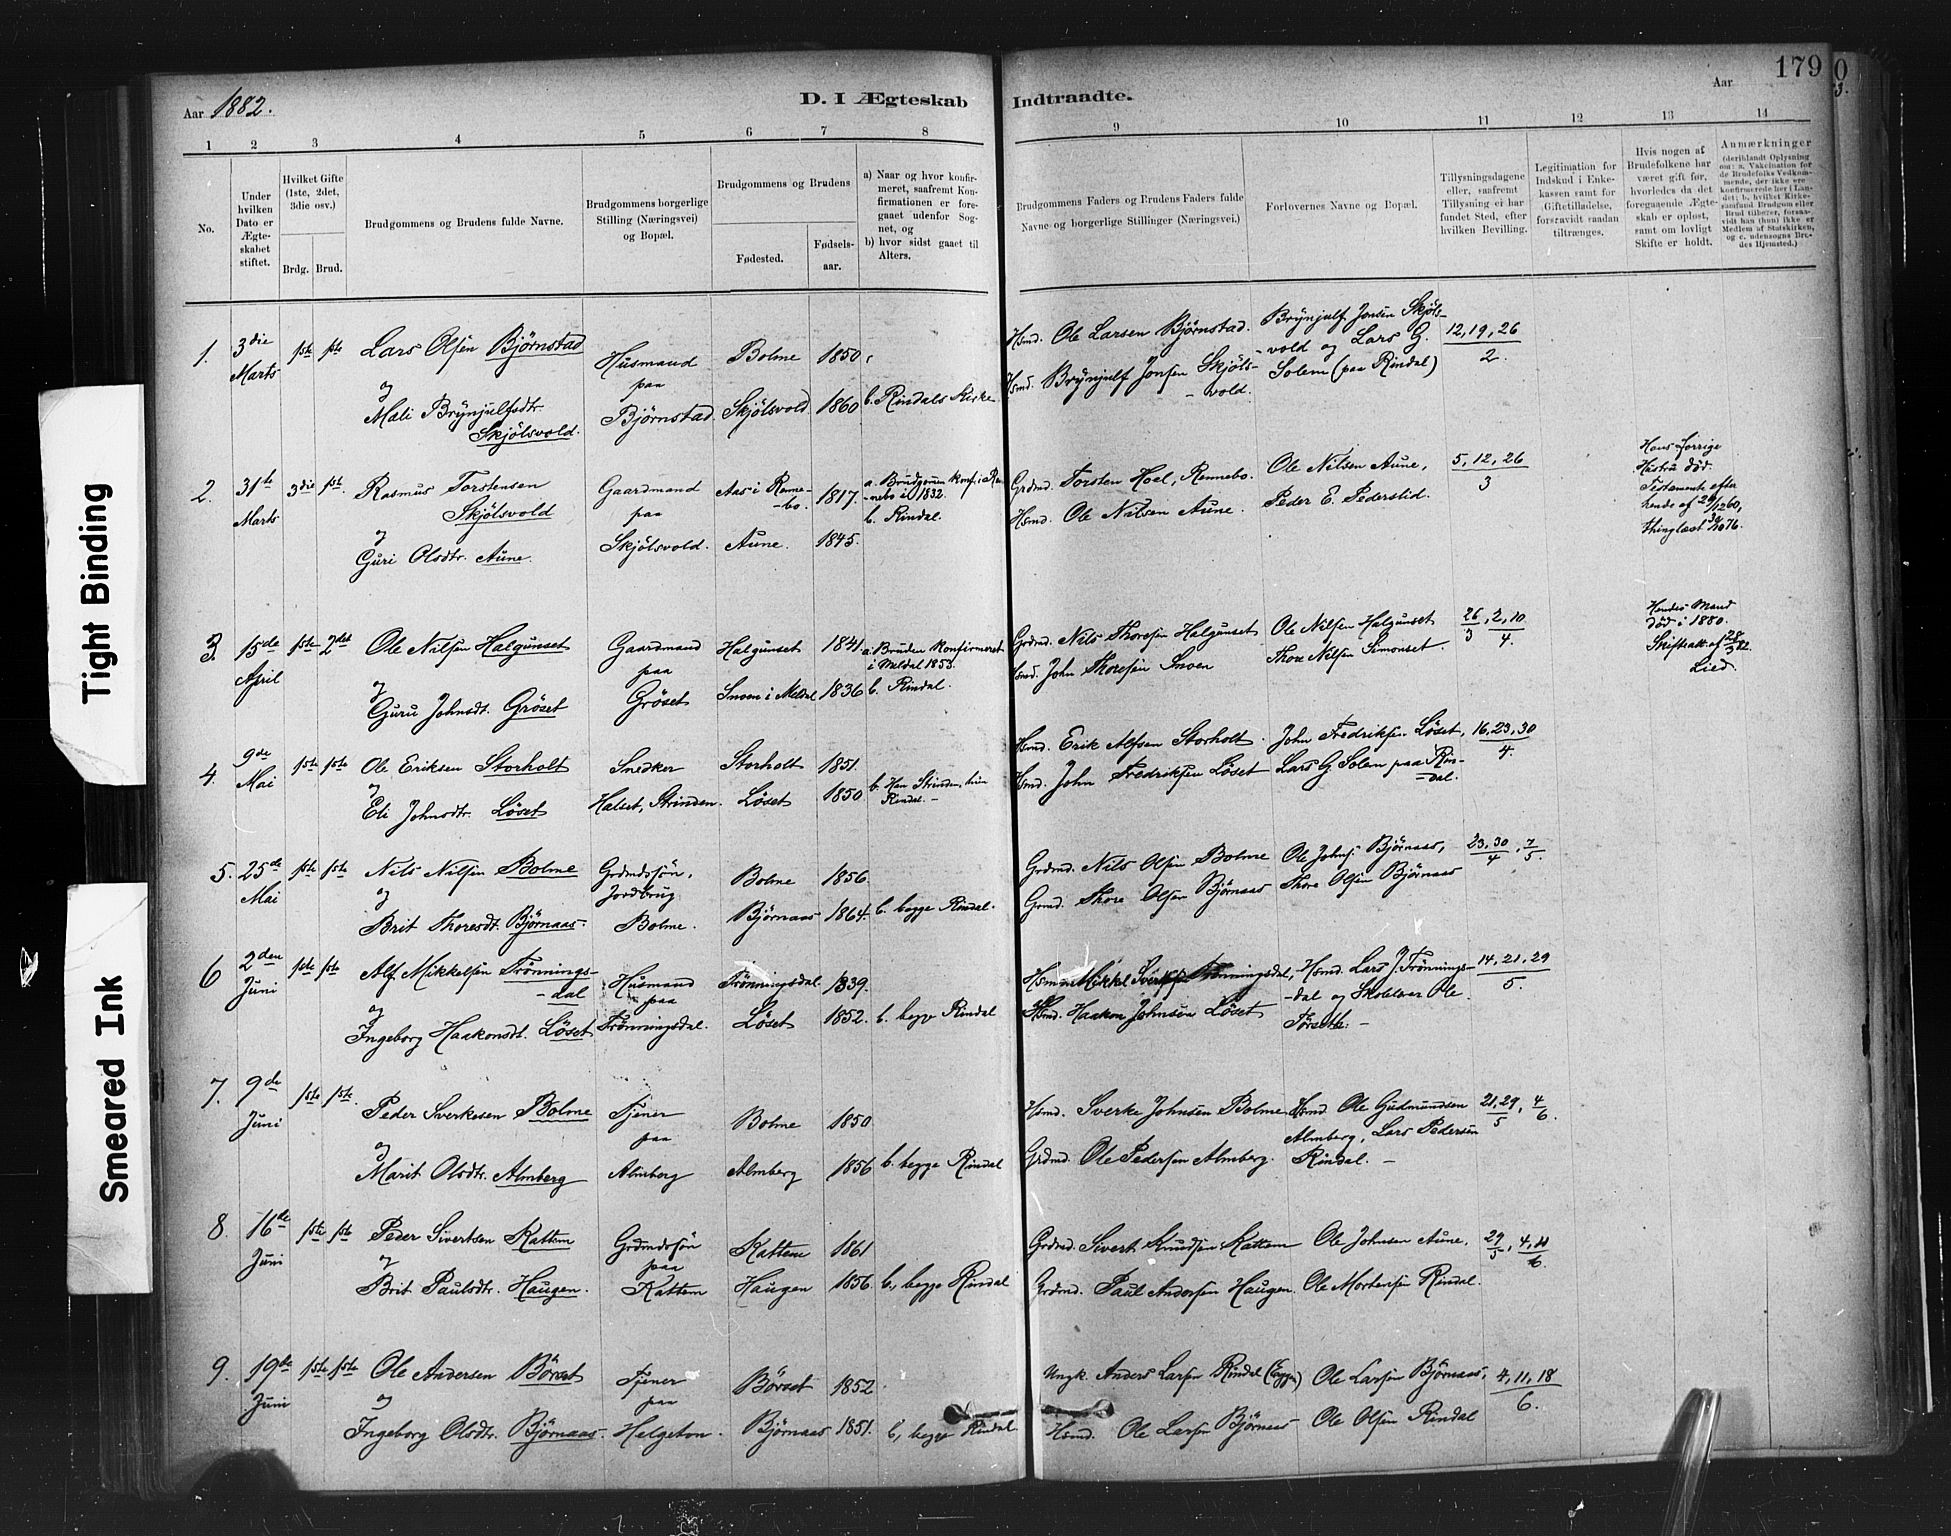 Aar 1882.
D. I Ægteskab Indtraadte.
Aar
179
0
3.
1 2 3 4 5 6 7 8 9 10 11 12 13 14
No.
Under hvilken Dato er Ægteskabet stiftet.
Hvilket Gifte (1ste, 2det, 3die osv.)
Brdg. Brud.
Brudgommens og Brudens fulde Navne.
Brudgommens borgerlige Stilling (Næringsvei) og Bopæl.
Brudgommens og Brudens
Fødested.
Fødselsaar.
a) Naar og hvor konfirmeret, saafremt Konfirmationen er foregaaet udenfor Sognet, og
b) hvor sidst gaaet til Alters.
Brudgommens Faders og Brudens Faders fulde Navne og borgerlige Stillinger (Næringsvei).
Forlovernes Navne og Bopæl.
Tillysningsdagene eller, saafremt Tillysning ei har fundet Sted, efter hvilken Bevilling.
Legitimation for Indskud i Enkekassen samt for Giftetilladelse, forsravidt saadan tiltrænges.
Hvis nogen af Brudefolkene har været gift før, hvorledes da det foregaaende Ægteskab er opløst, samt om lovligt Skifte er holdt.
Anmærkninger
(deriblandt Oplysning om: a. Vakcination for de Brudefolks Vedkommende, der ikke ere konfirmerede her i Landet; b. hvilket Kirkesamfund Brudgom eller Brud tilhører, forsaavidt han (hun) ikke er Medlem af Statskirken, og c. udensogns Brudes Hjemsted.)
1. 3die Marts 1ste 1ste Lars Olsen Björnstad
og
Mali Brynjulfsdtr. Skjölsvold.
Husmand paa Björnstad
Bolme 1850.
Skjölsvold 1860 b. Rindals Kirke.
Hsmd. Ole Larsen Björnstad.
Hsmd. Brynjulf Jonsen Skjöls-
-vold.
Brynjulf Jonsen Skjöls-
-vold og Lars G.
Solem (paa Rindal)
12, 19, 26
2.
2. 31te Marts 3die 1ste Rasmus Torstensen
Skjölsvold
og
Guri Olsdtr. Aune.
Gaardmand paa Skjölsvold.
Aas i Renne-
-bo. 1817.
Aune. 1845.
a. Brudgommen konf. i Ren-
-nebo i 1832.
b. Rindal.
Grdmd. Torsten Hoel, Rennebo.
Hsmd. Ole Nilsen Aune.
Ole Nilsen Aune,
Peder E. Pederslid.
5, 12, 26
3
Hans forrige
Hustru död.
Testamente efter
hende af 29/12 60,
thinglæst 3/10 76.
3. 15de April 1ste 2det Ole Nilsen Halgunset
og
Guru Johnsdt. Gröset
Gaardmand
paa
Gröset
Halgunset 1841.
Snoen i Meldal 1836
a. Bruden konfirmeret
i Meldal 1853.
b. Rindal.
Grdmd. Nils Thoresen Halgunset
Hsmd. John Thoresen Snoen
Ole Nilsen Halgunset
Thore Nilsen Simonset.
26/3, 2, 10/4.
Hendes Mand
död i 1880.
Skifteatt. af 28/3 82.
Lied.
4. 9de Mai 1ste 1ste Ole Eriksen Storholt
og
Eli Johnsdtr. Löset
Snedker
Halset, Strinden.
Storholt 1851.
Löset 1850
b. Han Strinden, hun
Rindal.-
Hsmd. Erik Alfsen Storholt.
Hsmd. John Fredriksen Löset
John Fredriksen Löset,
Lars G Solem paa Rin-
-dal.
16, 23, 30
4.
5. 25de Mai 1ste 1ste Nils Nilsen Bolme
og
Brit Thoresdt. Björnaas.
Grdmdssön,
Jordbrug
Bolme.
Bolme 1856
Björnaas 1864. b. begge Rindal.
Grdmd. Nils Olsen Bolme
Grmd. Thore Olsen Björnaas
Ole Johns. Björnaas,
Thore Olsen Björnaas
23, 30/4, 7/5.
6 2den Juni 1ste 1ste Alf Mikkelsen Trönnings-
-dal
og
Ingeborg Haakonsdt. Löset
Husmand
paa
Trönningsdal.
Trönningsdal 1839.
Löset 1852. b. begge Rindal
Hsmd. Mikkel Trönningsdal,
Hsmd. Haakon Johnsen Löset
Hsmd. Lars J. Trönnings-
-dal og Skolelærer Ole
14, 21, 29
5.
7. 9de Juni 1ste 1ste. Peder Sverkesen Bolme
og
Marit Olsdtr. Almberg
Tjener
paa
Almberg
Bolme 1850
Almberg 1856 b. begge Rindal
Hsmd. Sverke Johnsen Bolme
Grdmd. Ole Pedersen Almberg.
Hsmd. Ole Gudmundsen
Almberg, Lars Pedersen
Rindal. -
21, 29/5, 4/6.
8. 16de Juni 1ste 1ste Peder Sivertsen Kattem
og
Brit Paulsdtr. Haugen.
Grdmdssön
paa
Kattem
Kattem 1861
Haugen 1856. b, begge Rindal
Grdmd. Sivert Knudsen Kattem
Grdmd. Paul Andersen Haugen.
Ole Johnsen Aune,
Ole Mortensen Rindal.
29/5, 4, 11/6.
9. 19de Juni 1ste 1ste Ole Andersen Börset
og
Ingeborg Olsdtr. Björnaas.
Tjener
paa
Helgeton.
Börset 1852
Björnaas 1851. b, begge Rindal.
Ungk. Anders Larsen Rindal (Eggen)
Hsmd. Ole Larsen Björnaas
Ole Larsen Björnaas,
Ole Olsen Rindal
4, 11, 18
6.
Tight Binding
Smeared Ink